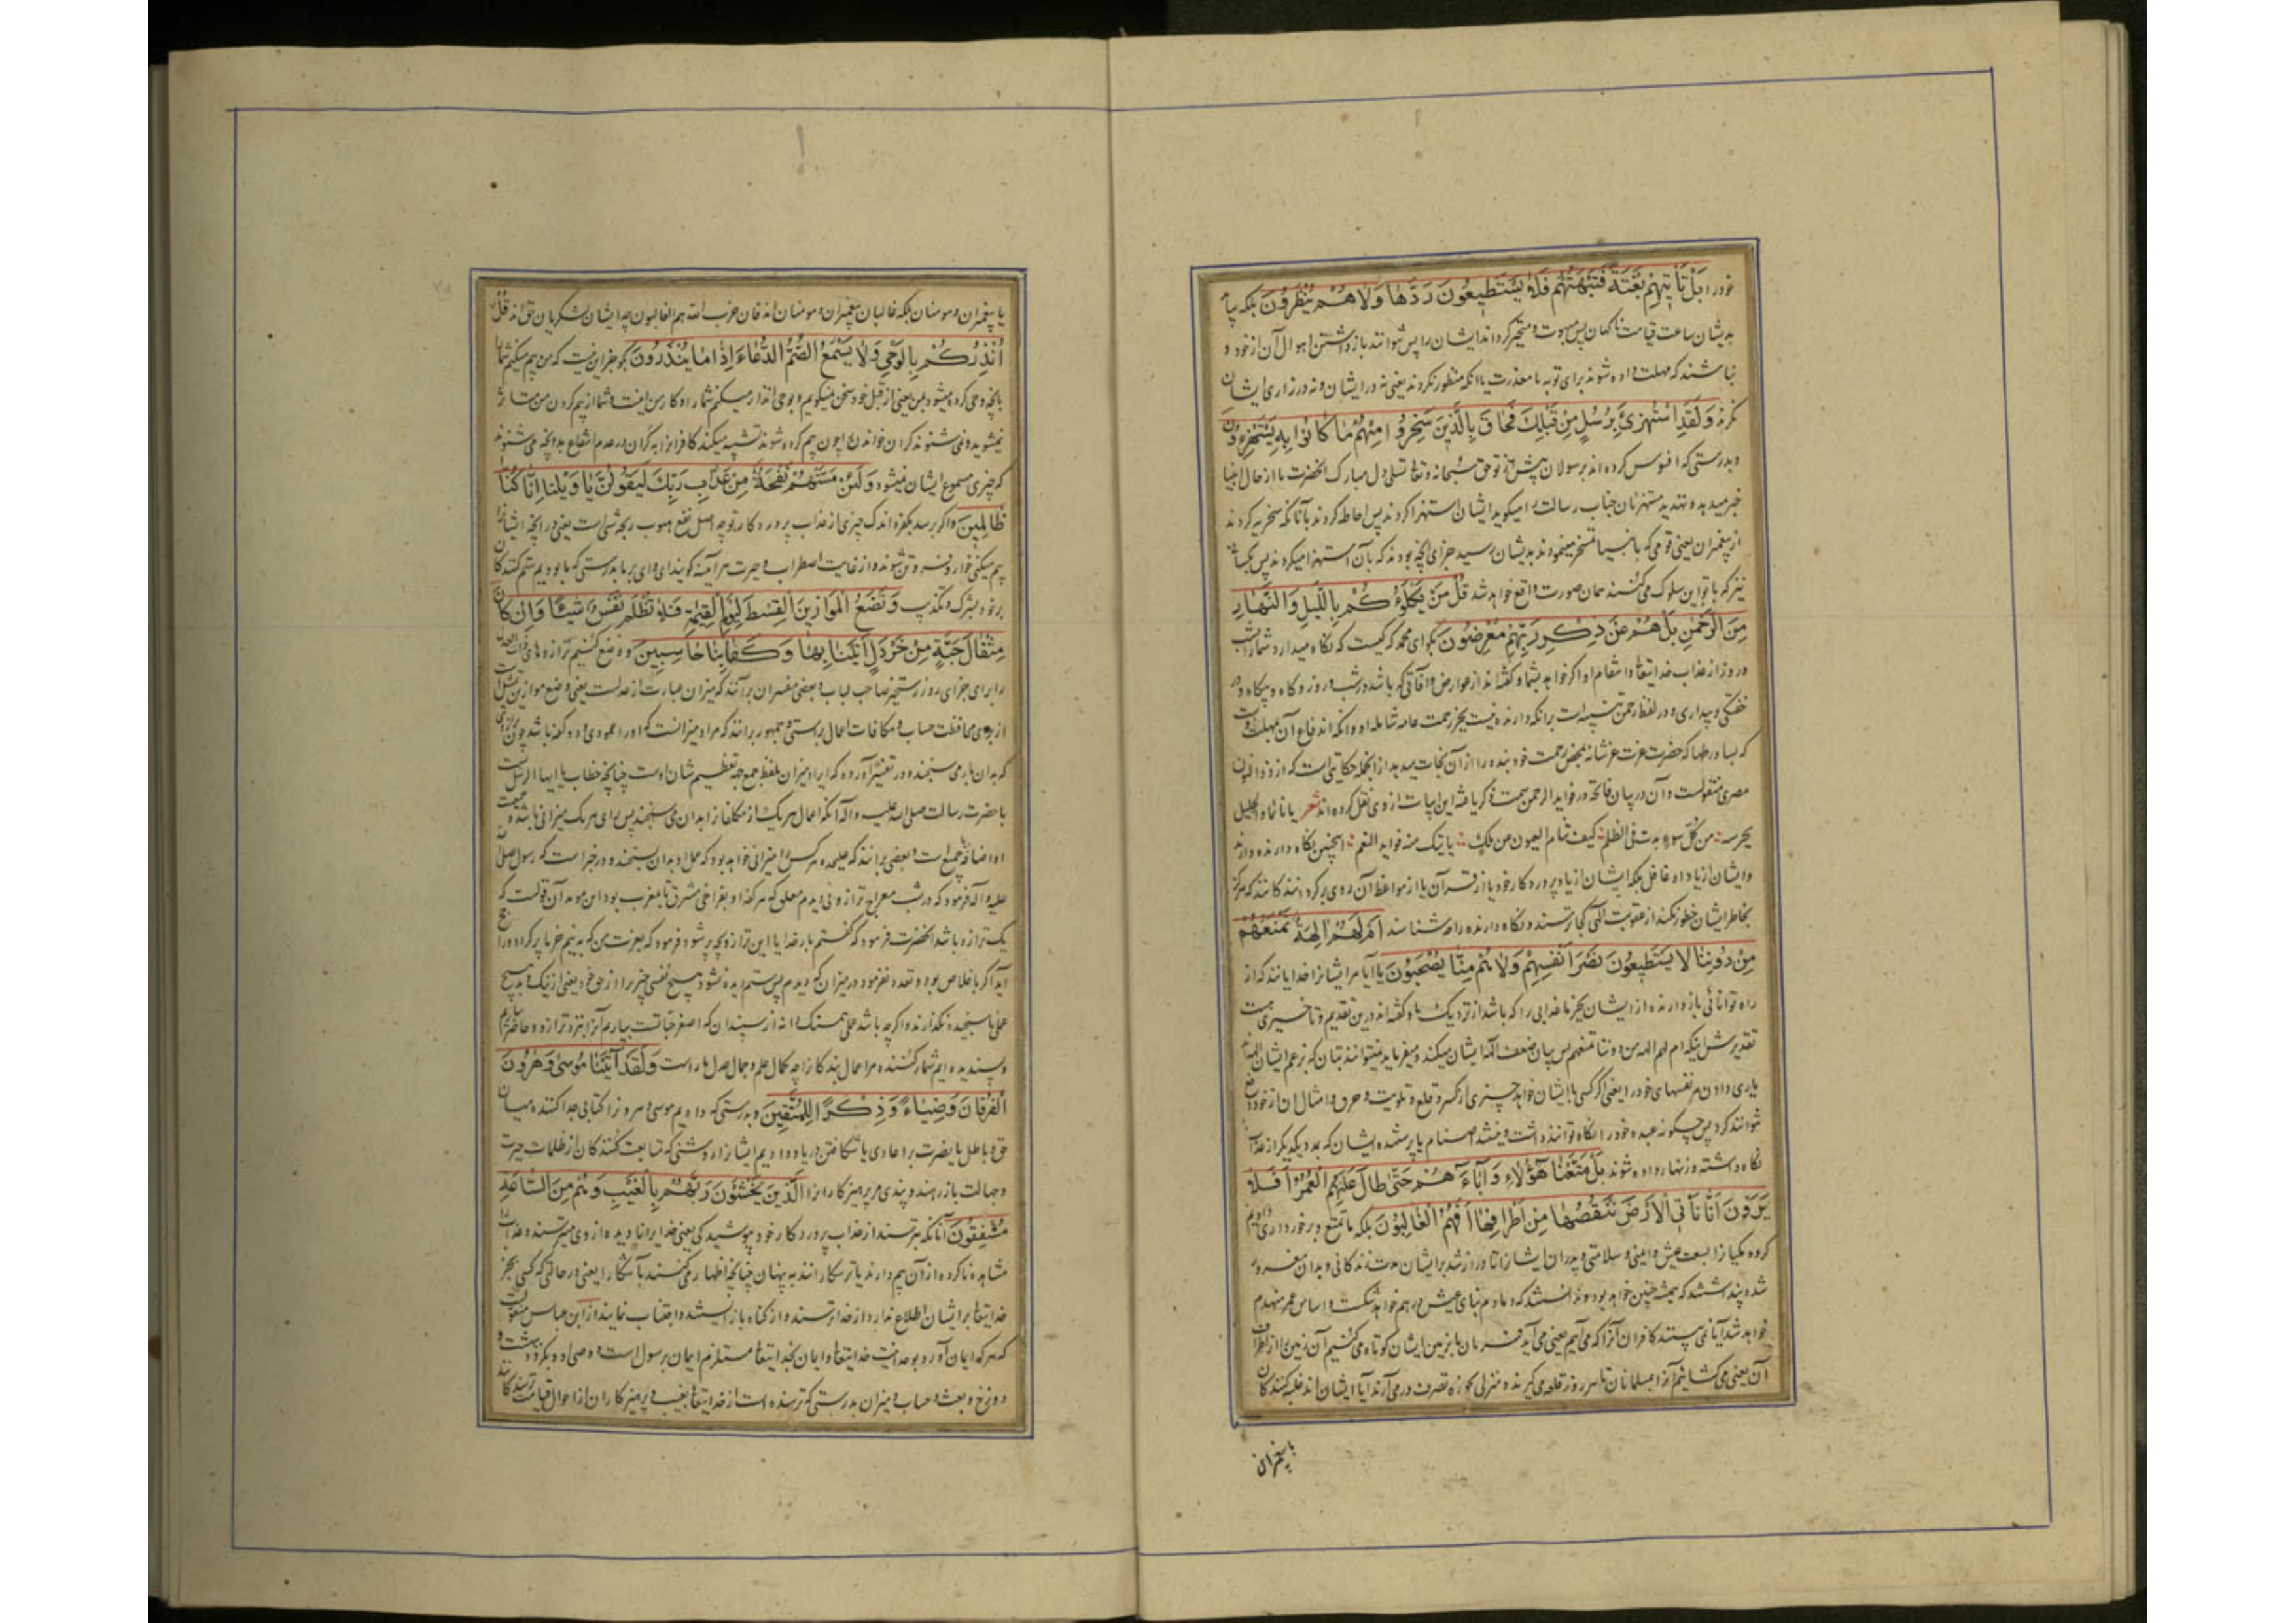 خود را بَلْ تَأْتِيهِمْ بَغْتَةً فَتَبْهَتُهُمْ فَلَا يَسْتَطِيعُونَ رَدَّهَا وَلَا هُمْ يُنْظَرُونَ بلکه بیا
بدیشان ساعت قیامت ناکهان پس مبهوت و متحیر کرداند ایشان را پس نتوانند بازداشتن اهوال آن از خود و
نباشند که مهلت داده شوند برای توبه یا معذرت یا انکه منظور نکردند یعنی نه در ایشان و نه در زاری ایشان
نکرند وَلَقَدِ اسْتُهْزِئَ بِرُسُلٍ مِنْ قَبْلِكَ فَحَاقَ بِالَّذِينَ سَخِرُوا مِنْهُمْ مَا كَانُوا بِهِ يَسْتَهْزِءُونَ
و بدرستی که افسوس کرده اند برسولان پیش از تو حق سبحانه و تعا تسلی دل مبارک انحضرت را از حال انبیا
خبر میدهد و تهدید مستهزئان جناب رسالت را میکوید ایشان استهزا کردند پس احاطه کرد بآنانکه سخریه کردند
از پیغمبران یعنی قومی که بانبیا تمسخر مینمودند بدیشان رسید جزای انچه بودند که بآن استهزا میکردند پس کسا
نیز که با تو این سلوک می کنند همان صورت واقع خواهد شد قُلْ مَنْ يَكْلَؤُكُمْ بِاللَّيْلِ وَالنَّهَارِ
مِنَ الرَّحْمٰنِ بَلْ هُمْ عَنْ ذِكْرِ رَبِّهِمْ مُعْرِضُونَ بکو ای محمد که کیست که نکاه میدارد شما را بشب
و روز از عذاب خدایتعا و انتقام او اکر خواهد بشما و کفته اند از عوارض و آفاتی که باشد در شب و روز و کاه و بیکاه و در
خفتکی و بیداری و در لفظ رحمن تنبیه است برانکه دارنده نیست بجز رحمت عامه شامله او وانکه اندفاع آن بمهلت اوست
که بسا ورطها که حضرت عزت عز شانه بمحض رحمت خود بنده را از آن نجات میدهد از انجمله حکایتی است که از ذوالنون
مصری منقولست و آن در بیان فاتحه در فواید الرحمن سمت ذکر یافته این ابیات از وی نقل کرده اند شعر یا نائما و الجلیل
یحرسه من کل سوء یدب فی الظلم کیف تنام العیون من ملک یاتیک منه فواید النعم اینچنین نکاه دارنده دارند
و ایشان از یاد او غافل بلکه ایشان از یاد پروردکار خود یا از قرآن یا از مواعظ آن روی برکردانندکانند که هرکز
بخاطر ایشان خطور نکند از عقوبت الهی کجا ترسند و نکاه دارنده را چه شناسند أَمْ لَهُمْ آلِهَةٌ تَمْنَعُهُمْ
مِنْ دُونِنَا لَا يَسْتَطِيعُونَ نَصْرَ أَنْفُسِهِمْ وَلَا هُمْ مِنَّا يُصْحَبُونَ یا آیا مر ایشانرا خدایانند که از
راه توانائی بازدارنده از ایشان بجز ما عذابی را که باشد از نزدیک ما و کفته اند درین تقدیم و تاخیری هست
تقدیرش اینکه ام لهم الهه من دوننا تمنعهم پس بیان ضعف الهه ایشان میکند و میفرماید نمیتوانند بتان که بزعم ایشان الهه اند
یاری دادن مر نفسهای خود را یعنی اکر کسی با ایشان خواهد چیزی از کسر و قلع و تلویث و حرق و امثال ان از خود دفع
نتوانند کرد پس چکونه عبده خود را نکاه توانند داشت و نیستند اصنام یا پرستنده ایشان که بمدد یکدیکر از عذاب
نکاه داشته و زنهار داده شوند بَلْ مَتَّعْنَا هٰؤُلَاءِ وَآبَاءَهُمْ حَتَّى طَالَ عَلَيْهِمُ الْعُمُرُ أَفَلَا
يَرَوْنَ أَنَّا نَأْتِي الْأَرْضَ نَنْقُصُهَا مِنْ أَطْرَافِهَا أَفَهُمُ الْغَالِبُونَ بلکه ما تمتع و برخورداری دادیم
کروه مکیان را بسعت عیش و ایمنی و سلامتی و پدران ایشانرا تا دراز شد برایشان مدت زندکانی و بدان مغرور
شده پنداشتند که همیشه چنین خواهد بود و ندانستند که هادم بنای عیش درهم خواهد شکست و اساس عمر منهدم
خواهد شد آیا نمی بینند کافران آنرا که می آیم یعنی می آید فرمان ما بزمین ایشان کوتاه می کنیم آن زمین را از اطراف
آن یعنی می کشایم آنرا بمسلمانان تا هر روز قلعه می کیرند و منزلی بحوزه تصرف درمی آرند آیا ایشان اند غلبه کنندکان
یا پیغمبران
یا پیغمبران و مومنان بلکه غالبان پیغمبران و مومنان اند فان حزب الله هم الغالبون چه ایشان لشکریان حق اند قُلْ إِنَّمَا
أُنْذِرُكُمْ بِالْوَحْيِ وَلَا يَسْمَعُ الصُّمُّ الدُّعَاءَ إِذَا مَا يُنْذَرُونَ بکو جز این نیست که من بیم میکنم شما را
بانچه وحی کرده میشود بمن یعنی از قبل خود سخن نمیکویم و بوحی انذار میکنم شما را و کار من اینست و شما از بیم کردن من متاثر
نمیشوید و نمی شنوند کران خواندن را چون بیم کرده شوند تشبیه میکند کافرانرا به کران در عدم انتفاع بدانچه می شنوند
که چیزی مسموع ایشان نمیشود وَلَئِنْ مَسَّتْهُمْ نَفْحَةٌ مِنْ عَذَابِ رَبِّكَ لَيَقُولُنَّ يَا وَيْلَنَا إِنَّا كُنَّا
ظَالِمِينَ و اکر برسد بکفره اندک چیزی از عذاب پروردکار تو چه اصل نفح هبوب ریحه شی است یعنی در انچه ایشانرا
بیم میکنی خوار و فروتن شوند و از غایت اضطراب و حیرت هر آینه کویند ای وای بر ما بدرستی که ما بودیم ستم کنندکان
بر خود بشرک و تکذیب وَنَضَعُ الْمَوَازِينَ الْقِسْطَ لِيَوْمِ الْقِيٰمَةِ فَلَا تُظْلَمُ نَفْسٌ شَيْئًا وَإِنْ كَانَ
مِثْقَالَ حَبَّةٍ مِنْ خَرْدَلٍ أَتَيْنَا بِهَا وَكَفَىٰ بِنَا حَاسِبِينَ و وضع کنیم ترازوهای ذات العدل
را برای جزای روز رستخیز صاحب لباب و بعضی مفسران برآنند که میزان عبارت از عدلست یعنی وضع موازین تمثیل است
از برای محافظت حساب و مکافات اعمال براستی و جمهور برانند که مراد میزانست که او را عمودی و دو کفه باشد چون ترازوئی
که بدان بار می سنجند و در تفسیر آورده که ایراد میزان بلفظ جمع جهه تعظیم شان اوست چنانچه خطاب یا ایها الرسل نسبت
با حضرت رسالت صلی الله علیه و آله یا آنکه اعمال هر یک از مکلفان را بدان می سنجند پس برای هر یک میزانی باشد و جمعیت
او اضافه جمیع است و بعضی برانند که علیحده هر کس را میزانی خواهد بود که عمل او بدان سنجند و در خبر است که رسول صلی الله
علیه و آله فرمود که در شب معراج ترازوئی دیدم معلق که هر کفه او بفراخی مشرق تا بمغرب بود این موید آن قولست که
یک ترازو باشد انحضرت فرمود که کفتم بار خدایا این ترازو بچه پر شود فرمود که بعزت من که به نیم خرما پر کردد و را
آید اکر باخلاص بود و تعدد نفرمود در میزان که دیدم پس ستم دیده نشود هیچ نفسی چیزی را از حق خود یعنی از نیک و بد هیچ
عملی ناسنجیده نکذارند و اکر چه باشد عملی همسنک دانه از سپندان که اصغر حباتست بیاریم آنرا بنزد ترازو و حاضر سازیم
و پسندیده ایم شمار کننده مر اعمال بندکان را چه کمال علم و جمال عدل ماراست وَلَقَدْ آتَيْنَا مُوسَىٰ وَهٰرُونَ
الْفُرْقَانَ وَضِيَاءً وَذِكْرًا لِلْمُتَّقِينَ و بدرستی که دادیم موسی و هرون را کتابی جدا کننده میان
حق و باطل یا بضرت بر اعادی یا شکافتن دریا و دادیم ایشانرا روشنی که متابعت کنندکان از ظلمات حیرت
و جهالت بازرهند و پندی مر پرهیزکاران را الَّذِينَ يَخْشَوْنَ رَبَّهُمْ بِالْغَيْبِ وَهُمْ مِنَ السَّاعَةِ
مُشْفِقُونَ آنانکه بترسند از عذاب پروردکار خود بپوشیدکی یعنی خدایرا نادیده از وی میترسند و عذاب را
مشاهده ناکرده از آن بیم دارند یا ترسکارانند به پنهان چنانچه اظهار می کنند بآشکارا یعنی در حالتی که کسی بجز
خدایتعا بر ایشان اطلاع ندارد از خدا ترسند و از کناه باز ایستند و اجتناب نمایند از ابن عباس منقولست
که هر که ایمان آورد بوحدانیت خدایتعا و ایمان بخدایتعا مستلزم ایمان برسول است و وصی او و بکرود ببهشت و
دوزخ و بعث و حساب و میزان بدرستی که ترسنده است از خدایتعا بغیب و پرهیزکاران از احوال قیامت ترسندکانند